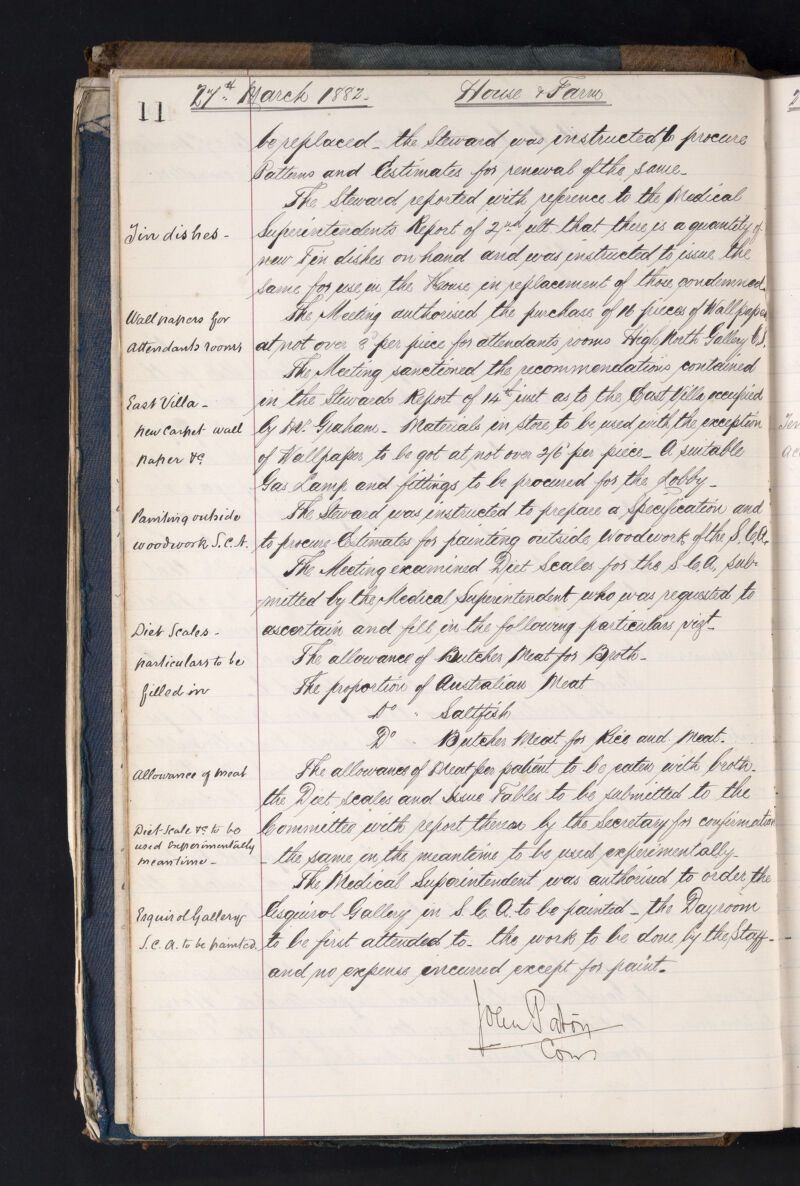 11
27th March 1882.
House & Farm
be replaced - the Steward was instructed to procure
Patterns and Estimates for renewal of the same -
The Steward reported with reference to the Medical
Tin dishes -
Superintendents Report of 2nd ult that there is a quantity of
new Tin dishes on hand and was instructed to issue the
same for use in the House in replacement of those condemned -
Wall papers for
The Meeting authorised the purchase of 16 pieces of Wallpaper
Attendants rooms
at not over per piece for attendants rooms High North Gallery
The Meeting sanctioned the recommendations contained
East Villa -
in the Stewards Report of 14th inst as to the East Villa occupied
new carpet wall
by Mr. Graham - Materials in store to be used with the exception
paper &c
of Wallpaper to be got at not over 2/6 per piece - A suitable
Gas Lamp and fittings to be procured for the Lobby -
Painting outside
The Steward was instructed to prepare a Specification and
woodwork S.C.A.
to procure Estimates for painting outside woodwork of the S.C.A.
The Meeting examined Diet Scales for the S.C.A. sub-
-mitted by the Medical Superintendent who was requested to
Diet Scales -
ascertain and fill in the following particulars vizt -
particulars to be
The allowance of Butcher Meat for Broth -
filled in
The proportion of Australian Meat
Do " Saltfish
Do " Butcher Meat for Rice and Meat -
Allowance of meat
The allowance of Meat per patient to be eaten with broth -
the Diet scales and Issue Tables to be submitted to the
Diet Scale &c to be
Committee with report thereon by the Secretary for confirmation
used experimentally
meantime -
- the same in the meantime to be used experimentally -
The Medical Superintendent was authorised to order the
Esquirol Gallery
Esquirol Gallery in S.C.A. to be painted - the Dayroom
S.C.A. to be painted.
to be first attended to - the work to be done by the Staff -
and no expense incurred except for paint -
John Paton
Conr